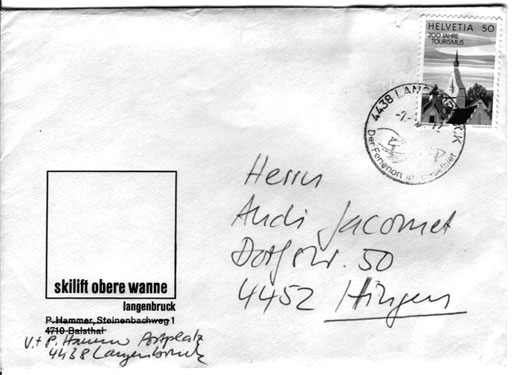 HELVETIA 50
200 JAHRE
TOURISMUS
4438 LANGENBRUCK
Der Ferienort im Baselbiet
Herrn
Andi Jacomet
Dorfstr. 50
4452 Itingen
skilift obere wanne
langenbruck
P. Hammer, Steinenbachweg 1
4710 Balsthal
V. + P. Hammer Postplatz
4438 Langenbruck